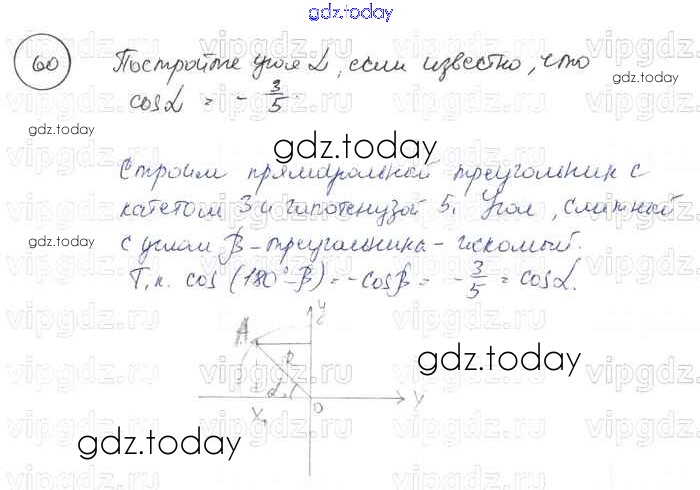 gdz.today
60
Постройте угол α, если известно, что
cosα = - 3/5.
gdz.today
gdz.today
Строим прямоугольный треугольник с
катетом 3 и гипотенузой 5. Угол, смежный
gdz.today
с углом β - треугольника - искомый.
Т.к. cos (180° - β) = - cosβ = - 3/5 = cosα.
y
A
R
gdz.today
α
X₁
0
gdz.today